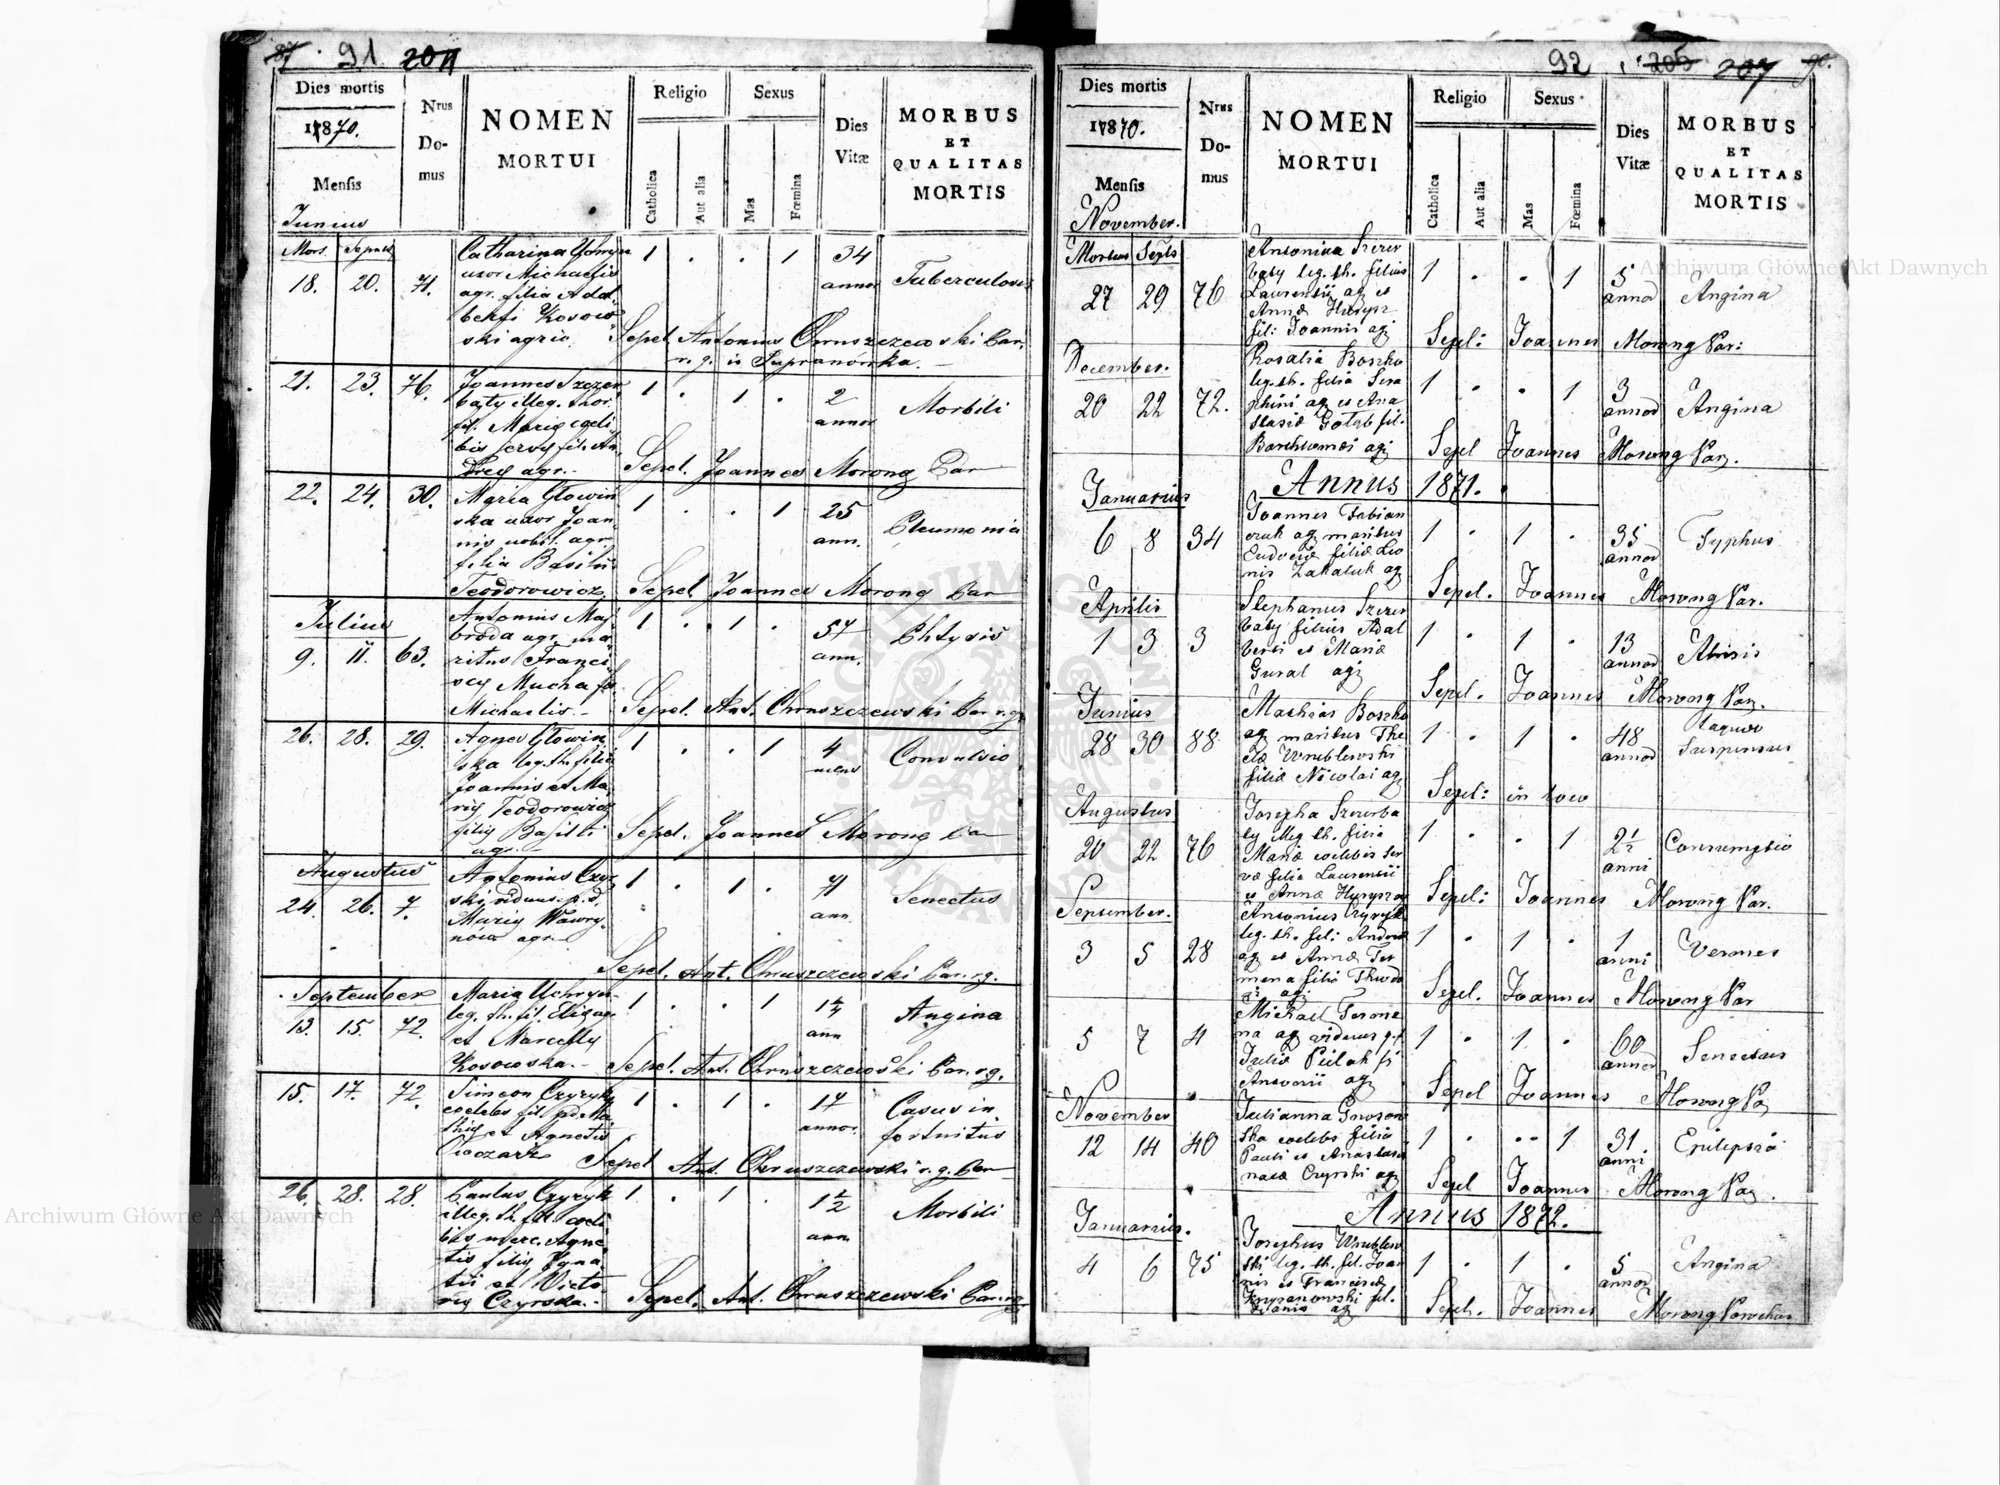 87 91 204
Dies mortis
1870.
Mensis
Junius
Nrus
Do-
mus
NOMEN
MORTUI
Religio
Catholica
Aut alia
Sexus
Mas
Fœmina
Dies
Vitæ
MORBUS
ET
QUALITAS
MORTIS
Mors. Sepult
18. 20. 71.
Catharina
uxor Michaelis
agr. filia Adal-
berti Kosow
ski agric.
1 . . 1
34
annor
Tuberculosis
Sepel. Antonius Chruszczewski Par.
r. g. is Supranówka.
21. 23. 76.
Joannes Szczer
baty illeg. thor.
fil. Mariæ cæli
bis servæ fil. An
dreæ agr.
1 . 1 .
2
annor
Morbili
Sepel. Joannes Morong Par
22. 24. 30.
Maria Głowin
ska uxor Joan
nis nobil. agr.
filia Basilii
Teodorowicz.
1 . . 1
25
ann.
Pleumonia
Sepel Joannes Morong Par
Julius
9. 11. 63.
Antonius Maj
broda agr. ma
ritus Franci
scæ Mucha
Michaelis.
1 . 1 .
57
ann.
Phtysis
Sepel. Ant. Chruszczewski Par. r. g.
26. 28. 29.
Agnes Głowin
ska leg. th. filia
Joannis et Ma
riæ Teodorowicz
filiæ Basilii
agr.
1 . . 1
4
mens
Convulsio
Sepel. Joannes Morong Par
Augustus
24. 26. 7.
Antonius Czyr
ski viduus p. d.
Mariæ Wawry
nów agr.
1 . 1 .
71
ann.
Senectus
Sepel. Ant. Chruszczewski Par. r. g.
September
13. 15. 72.
Maria
leg. th. fil.
et Marcelly
Kosowska.
1 . . 1
ann
Angina
Sepel. Ant. Chruszczewski Par. r. g.
15. 17. 72.
Simeon Czyzyk
coelebs fil. pd. Ma
thiæ et Agnetis
Owczarz
1 . 1 .
17
annor.
Casus in
fortuitus
Sepel Ant. Chruszczewski r. g. Par
26. 28. 28.
Paulus Czyzyk
illeg. th. fil. coeli
bis merc. Agne
tis filiæ Igna
tii et Victo
riæ Czyrska.
1 . 1 .
1½
ann.
Morbili
Sepel. Ant. Chruszczewski Par. r. g.
92 205 207 90.
Dies mortis
1870.
Mensis
November.
Nrus
Do-
mus
NOMEN
MORTUI
Religio
Catholica
Aut alia
Sexus
Mas
Fœmina
Dies
Vitæ
MORBUS
ET
QUALITAS
MORTIS
Mortus Septs
27 29 76
Antonina Szczer
baty leg. th. filius
Laurentii ag et
Annæ Hurysz
fil: Joannis ag
1 . . 1
5
annor
Angina
Sepel: Joannes Morong Par:
December.
20 22 72.
Rosalia Boszko
leg. th. filia Sera
phini ag et Ana
stasiæ Gołąb fil.
Barthlomei ag
1 . . 1
3
annor
Angina
Sepel Joannes Morong Par.
Annus 1871.
Januarius
6 8 34
Joannes Fabian
czuk ag maritus
Eudociæ filiæ Leo
nis Zakaluk ag
1 . 1 .
35
annor
Typhus
Sepel. Joannes Morong Par.
Aprilis
1 3 3
Stephanus Szczer
baty filius Adal
berti et Mariæ
Gural ag
1 . 1 .
13
annor
Sepel. Joannes Morong Par.
Junius
28 30 88
Mathias Boszko
ag maritus The
clæ Wrublewski
filiæ Nicolai ag
1 . 1 .
48
annor
Laqueo
suspensus
Sepel: in loco
Augustus
20 22 76
Josepha Szczerba
ty illeg th. filia
Mariæ coelebis ser
væ filia Laurentii
et Annæ Hurysz ag
1 . . 1
2½
anni
Consumptio
Sepel: Joannes Morong Par.
September.
3 5 28
Antonius Czyzyk
leg. th. fil: Andreæ
ag et Annæ Fer
mena filiæ Theodo
ri ag
1 . 1 .
1
anni
Vermes
Sepel. Joannes Morong Par
5 7 4
Michael Ferme
na ag viduus p. d.
Juliæ Pielak fi
ag
1 . 1 .
60
annor
Senectus
Sepel Joannes Morong Par
November
12 14 40
Julianna Gnoson
ska coelebs filia
Pauli et Anastasiæ
natæ Czyrski ag
1 . . 1
31
anni
Epilepsia
Sepel Joannes Morong Par.
Annus 1872.
Januarius.
4 6 75
Josephus Wrublew
ski leg. th. fil. Joan
nis et Franciscæ
Kryzanowski fil.
ag
1 . 1 .
5
annor
Angina
Sepel. Joannes Morong Parochus
Archiwum Główne Akt Dawnych
Archiwum Główne Akt Dawnych
ARCHIWUM GŁÓWNE AKT DAWNYCH